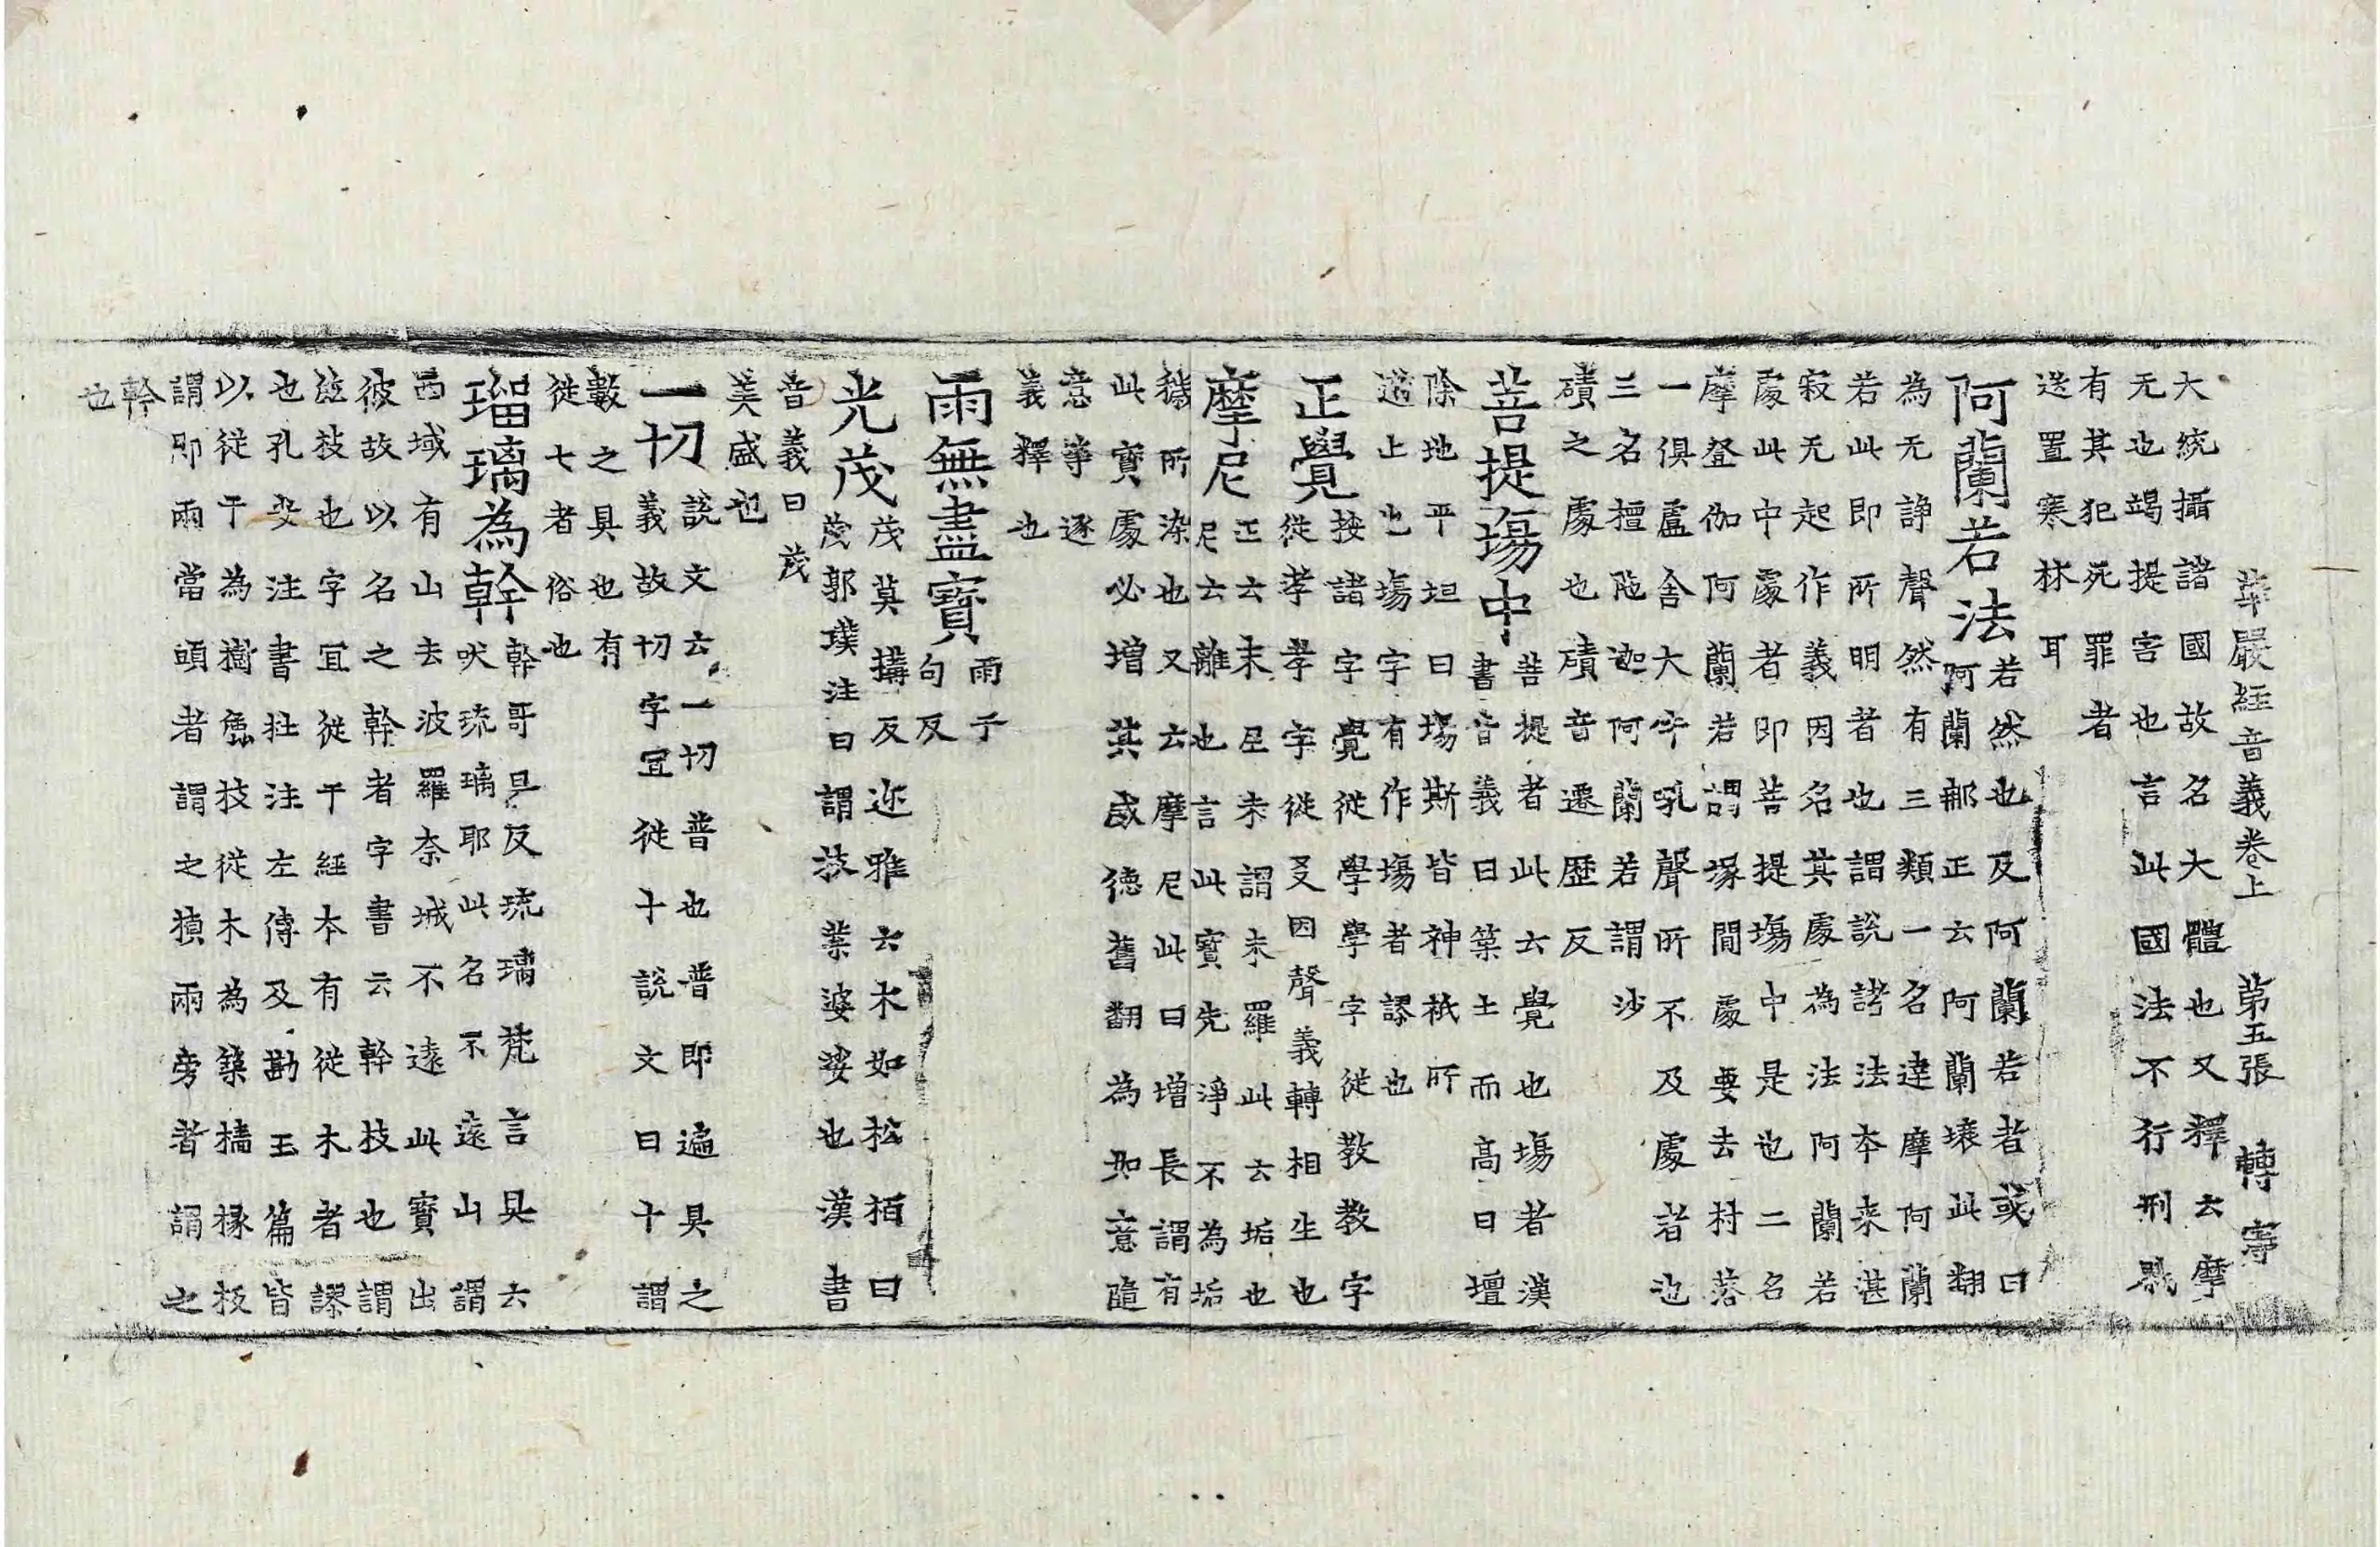 華嚴經音義卷上 第五張 轉 寧
大統攝諸國故名大體也又釋云摩
无也竭提害也言此國法不行刑戮
有其犯死罪者
送置寒林耳
阿蘭若法
若然也及阿蘭若者或曰
阿蘭那正云阿蘭壤此翻
為无諍聲然有三類一名達摩阿蘭
若此即所明者也謂說諸法本来湛
寂无起作義因名其處為法阿蘭若
處此中處者即菩提塲中是也二名
摩登伽阿蘭若謂塜間處要去村落
一俱盧舍大牛吼聲所不及處者也
三名檀陁迦阿蘭若謂沙
磧之處也磧音遷歷反
菩提塲中
菩提者此云覺也塲者漢
書音義曰築土而高曰壇
除地平坦曰塲斯皆神祇所
遊上也塲字有作塲者謬也
正覺
按諸字覺從學學字從教教字
從孝孝字從爻因聲義轉相生也
摩尼
正云末尼末謂末羅此云垢也
尼云離也言此寶先淨不為垢
穢所染也又云摩尼此曰增長謂有
此寶處必增其威德舊翻為如意隨
意等逐
義釋也
雨無盡寶
雨于
句反
光茂
茂莫搆反迩雅云木如松栢曰
茂郭璞注曰謂枝葉婆娑也漢書
音義曰茂
美盛也
一切
說文云一切普也普即遍具之
義故切字宜從十說文曰十謂
數之具也有
從七者俗也
瑠璃為幹
幹哥旦反琉璃梵言具云
吠琉璃耶此名不遠山謂
西域有山去波羅奈城不遠此寶出
彼故以名之幹者字書云幹枝也謂
莖枝也字宜從干經本有從木者謬
也孔安注書杜注左傳及勘玉篇皆
以從干為樹𠁅枝從木為築墻椽板
謂即兩當頭者謂之楨兩旁者謂之
幹
也